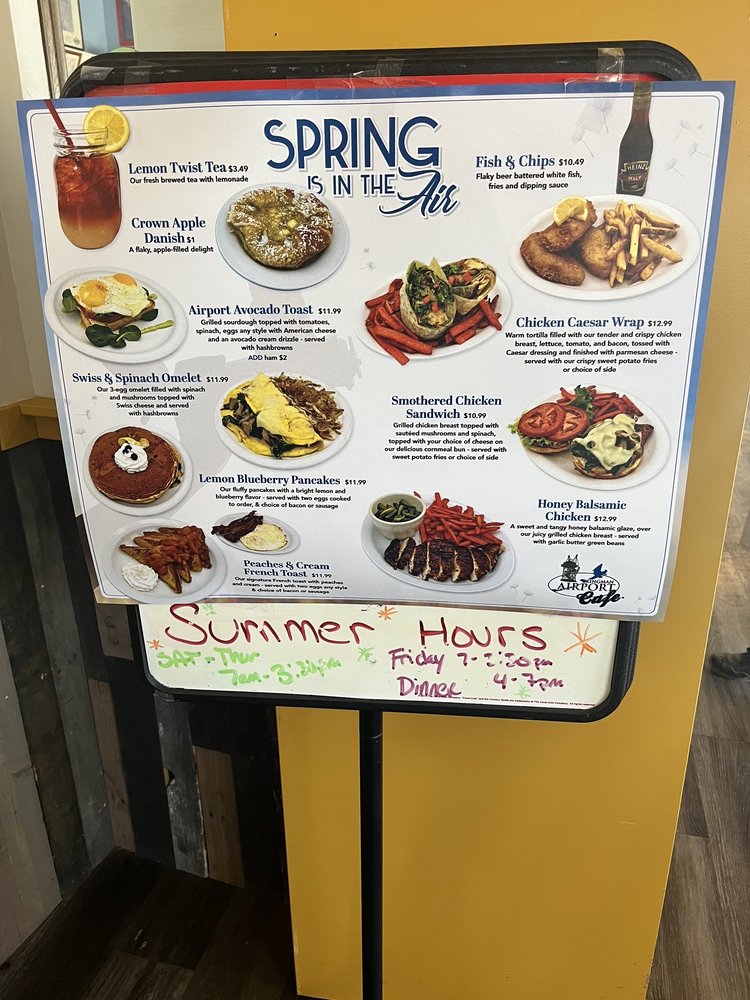 SPRING
IS IN THE
Air
Lemon Twist Tea $3.49
Our fresh brewed tea with lemonade
Crown Apple
Danish $1
A flaky, apple-filled delight
Airport Avocado Toast $11.99
Grilled sourdough topped with tomatoes,
spinach, eggs any style with American cheese
and an avocado cream drizzle - served
with hashbrowns
ADD ham $2
Swiss & Spinach Omelet $11.99
Our 3-egg omelet filled with spinach
and mushrooms topped with
Swiss cheese and served
with hashbrowns
Lemon Blueberry Pancakes $11.99
Our fluffy pancakes with a bright lemon and
blueberry flavor - served with two eggs cooked
to order, & choice of bacon or sausage
Peaches & Cream
French Toast $11.99
Our signature French toast with peaches
and cream - served with two eggs any style
& choice of bacon or sausage
Fish & Chips $10.49
Flaky beer battered white fish,
fries and dipping sauce
HEINZ
MALT
Chicken Caesar Wrap $12.99
Warm tortilla filled with our tender and crispy chicken
breast, lettuce, tomato, and bacon, tossed with
Caesar dressing and finished with parmesan cheese -
served with our crispy sweet potato fries
or choice of side
Smothered Chicken
Sandwich $10.99
Grilled chicken breast topped with
sautéed mushrooms and spinach,
topped with your choice of cheese on
our delicious cornmeal bun - served with
sweet potato fries or choice of side
Honey Balsamic
Chicken $12.99
A sweet and tangy honey balsamic glaze, over
our juicy grilled chicken breast - served
with garlic butter green beans
KINGMAN
AIRPORT
Cafe
Summer Hours
SAT - Thur
7am - 3:30pm
Friday 7-
Dinner 4-7pm